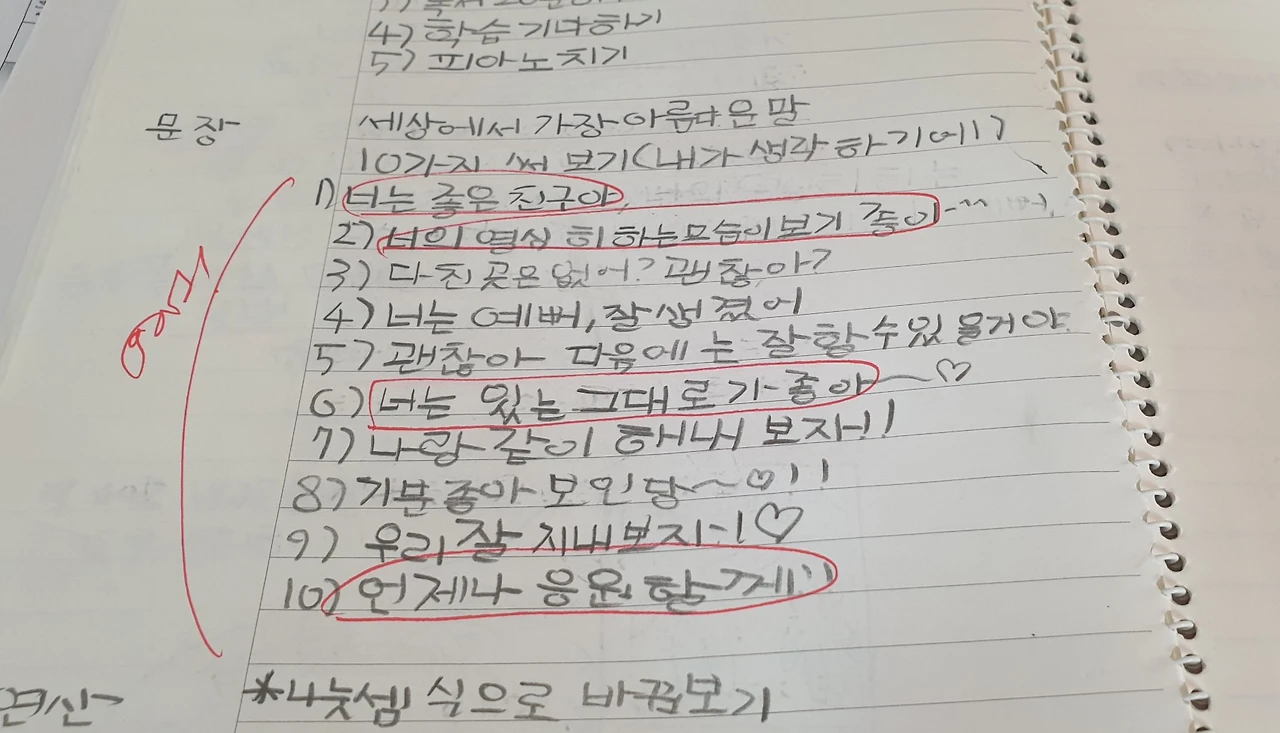 4) 학습 기너하기
5) 피아노 치기
문장
세상에서 가장 아름다운 말
10가지 써 보기(내가 생각하기에!)
1) 너는 좋은 친구야
2) 너의 열심히 하는 모습이 보기 좋아~~
3) 다친 곳은 없어? 괜찮아?
4) 너는 예뻐, 잘생겼어
5) 괜찮아 다음에는 잘할 수 있을거야
6) 너는 있는 그대로가 좋아~♡
7) 나랑 같이 해내 보자!!
8) 기분 좋아 보인당~♡!!
9) 우리 잘 지내보자!♡
10) 언제나 응원할게!!
연산
*나눗셈 식으로 바꿔보기